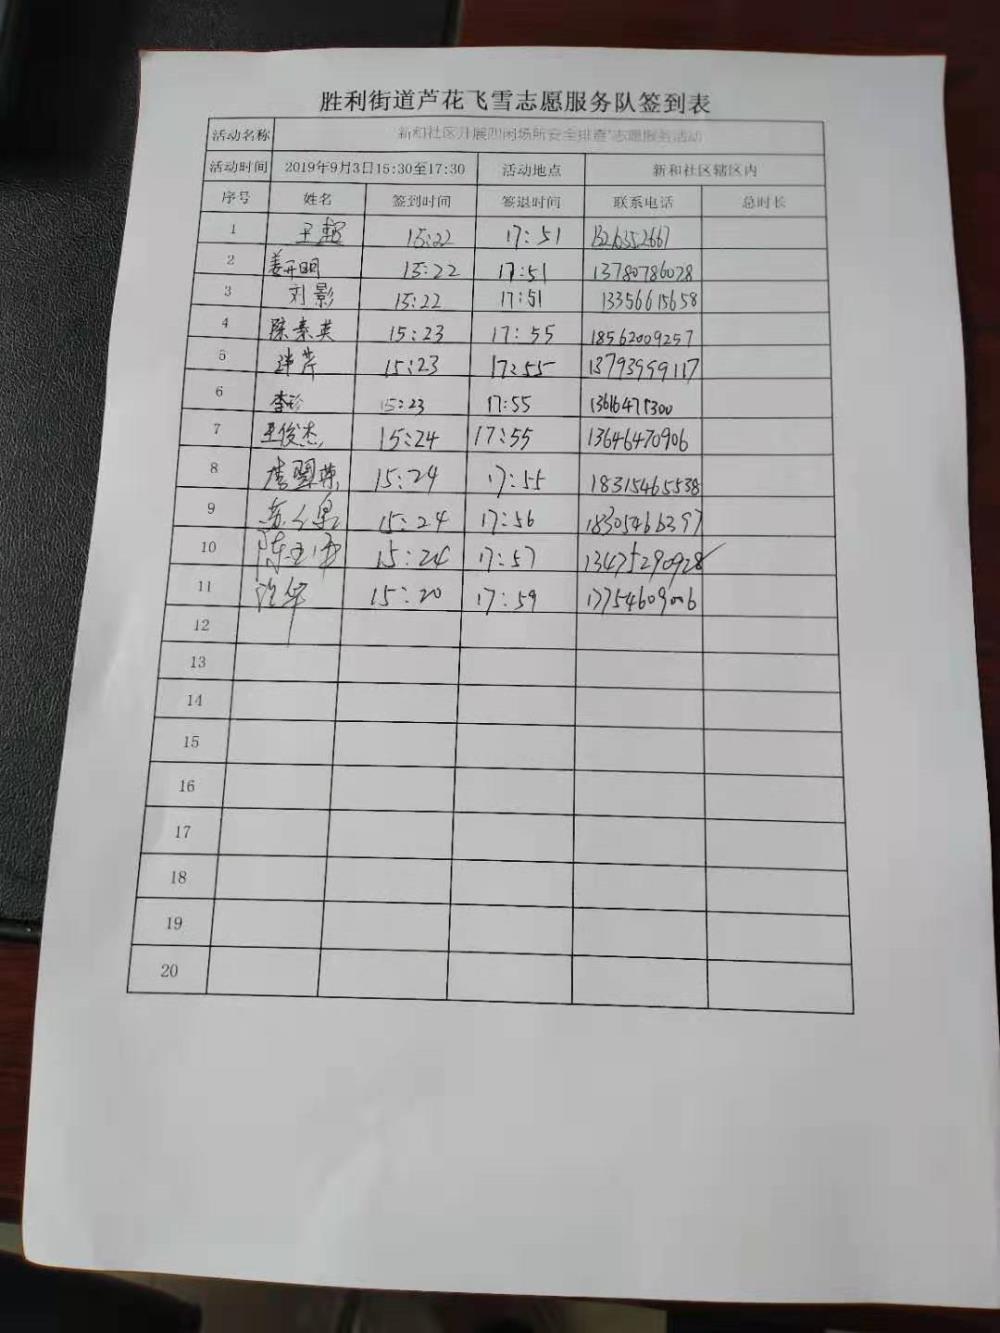 胜利街道芦花飞雪志愿服务队签到表
活动名称 新和社区开展四闲场所安全排查"志愿服务活动
活动时间 2019年9月3日15:30至17:30 活动地点 新和社区辖区内
序号 姓名 签到时间 签退时间 联系电话 总时长
1 15:22 17:51
2 姜开明 15:22 17:51 13780786028
3 刘影 15:22 17:51 13356615658
4 陈素英 15:23 17:55 18562009257
5 15:23 17:55 13793999117
6 李珍 15:23 17:55
7 王俊杰 15:24 17:55 13646470906
8 15:24 17:55 18315465538
9 15:24 17:56 18305466397
10 15:24 17:57 13475290928
11 15:20 17:59 17754609006
12
13
14
15
16
17
18
19
20